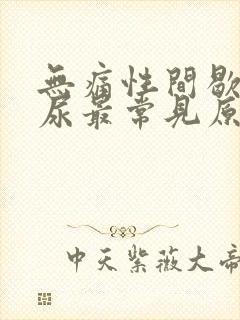 無痛性間歇
尿最常見原
中天紫薇大帝